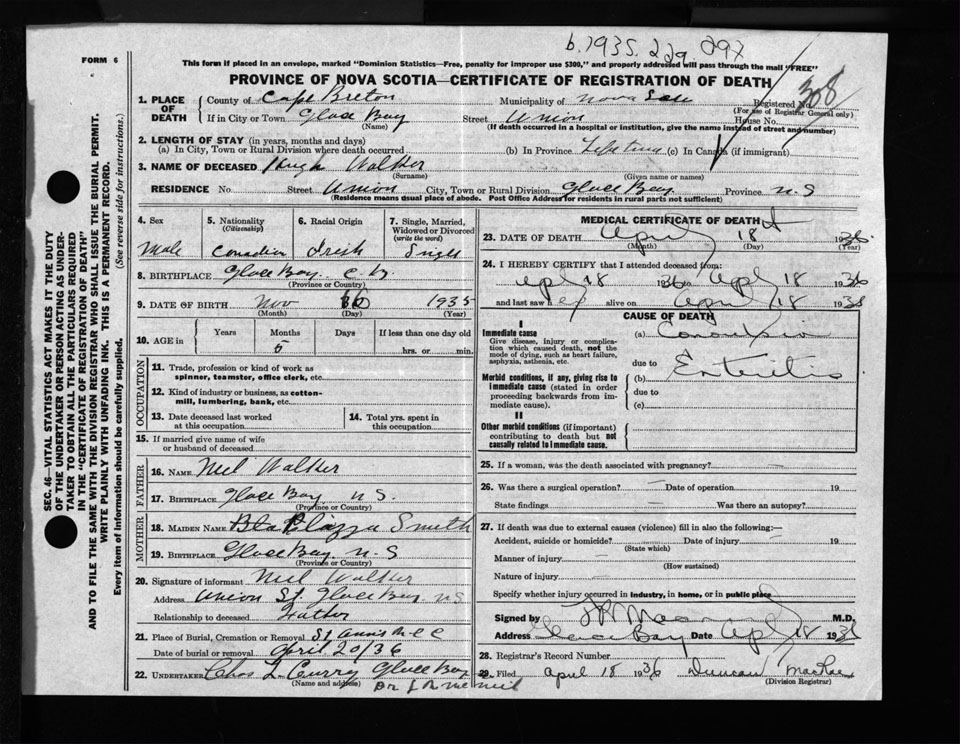 b. 1935. 229 292
FORM 6
This form if placed in an envelope, marked "Dominion Statistics—Free, penalty for improper use $300," and properly addressed will pass through the mail "FREE"
PROVINCE OF NOVA SCOTIA—CERTIFICATE OF REGISTRATION OF DEATH
308
1. PLACE OF DEATH
County of Cape Breton Municipality of Nova Registered No.
(For use of Registrar General only)
If in City or Town Glace Bay Street Union House No.
(Name) (If death occurred in a hospital or institution, give the name instead of street and number)
2. LENGTH OF STAY (in years, months and days)
(a) In City, Town or Rural Division where death occurred (b) In Province Lifetime (c) In Canada (if immigrant)
3. NAME OF DECEASED Hugh Walker
(Surname) (Given name or names)
RESIDENCE No. Street Union City, Town or Rural Division Glace Bay Province N.S
(Residence means usual place of abode. Post Office Address for residents in rural parts not sufficient)
4. Sex Male
5. Nationality (Citizenship) Canadian
6. Racial Origin Irish
7. Single, Married, Widowed or Divorced (write the word) Single
8. BIRTHPLACE Glace Bay C. B.
(Province or Country)
9. DATE OF BIRTH Nov 1935
(Month) (Day) (Year)
10. AGE in Years Months 5 Days If less than one day old hrs. or min.
OCCUPATION
11. Trade, profession or kind of work as spinner, teamster, office clerk, etc.
12. Kind of industry or business, as cotton-mill, lumbering, bank, etc.
13. Date deceased last worked at this occupation
14. Total yrs. spent in this occupation
15. If married give name of wife or husband of deceased
FATHER
16. NAME Neil Walker
17. BIRTHPLACE Glace Bay N.S.
(Province or Country)
MOTHER
18. MAIDEN NAME Smith
19. BIRTHPLACE Glace Bay N-S
(Province or Country)
20. Signature of informant Neil Walker
Address Union St. Glace Bay N.S
Relationship to deceased Father
21. Place of Burial, Cremation or Removal St Anns
Date of burial or removal April 20/36
22. UNDERTAKER Chas L Curry Glace Bay
(Name and address)
MEDICAL CERTIFICATE OF DEATH
23. DATE OF DEATH April 18th 1936
(Month) (Day) (Year)
24. I HEREBY CERTIFY that I attended deceased from:
Apl 18 1936 to Apl 18 1936
and last saw alive on April 18 1936
CAUSE OF DEATH
I
Immediate cause
Give disease, injury or complication which caused death, not the mode of dying, such as heart failure, asphyxia, asthenia, etc.
(a) Convulsion
due to
Morbid conditions, if any, giving rise to immediate cause (stated in order proceeding backwards from immediate cause).
(b) Enteritis
due to
(c)
II
Other morbid conditions (if important) contributing to death but not causally related to immediate cause.
25. If a woman, was the death associated with pregnancy?
26. Was there a surgical operation? Date of operation 19
State findings Was there an autopsy?
27. If death was due to external causes (violence) fill in also the following:—
Accident, suicide or homicide? Date of injury 19
(State which)
Manner of injury
(How sustained)
Nature of injury
Specify whether injury occurred in industry, in home, or in public place
Signed by M.D.
Address Glace Bay Date Apl 18 1936
28. Registrar's Record Number
29. Filed April 18 1936 Duncan MacRae
(Division Registrar)
SEC. 46—VITAL STATISTICS ACT MAKES IT THE DUTY
OF THE UNDERTAKER OR PERSON ACTING AS UNDERTAKER TO OBTAIN ALL THE PARTICULARS REQUIRED
IN THE "CERTIFICATE OF REGISTRATION OF DEATH"
AND TO FILE THE SAME WITH THE DIVISION REGISTRAR WHO SHALL ISSUE THE BURIAL PERMIT.
WRITE PLAINLY WITH UNFADING INK. THIS IS A PERMANENT RECORD.
Every item of Information should be carefully supplied. (See reverse side for instructions.)